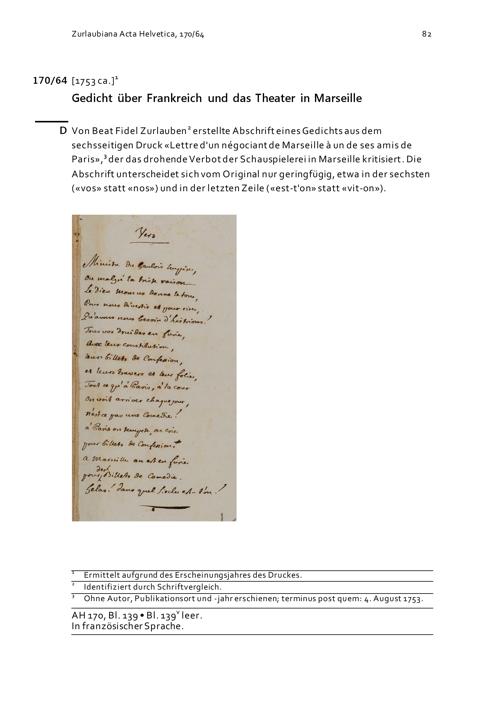 Zurlaubiana Acta Helvetica, 170/64
82
170/64 [1753 ca.]¹
Gedicht über Frankreich und das Theater in Marseille
D Von Beat Fidel Zurlauben² erstellte Abschrift eines Gedichts aus dem
sechsseitigen Druck «Lettre d'un négociant de Marseille à un de ses amis de
Paris»,³ der das drohende Verbot der Schauspielerei in Marseille kritisiert. Die
Abschrift unterscheidet sich vom Original nur geringfügig, etwa in der sechsten
(«vos» statt «nos») und in der letzten Zeile («est-t'on» statt «vit-on»).
Vers
Ministre du
ou malgré la triste raison
Le dieu momus donne le ton,
Pour nous divertir et pour rire,
Qu'avons nous besoin d'histrions!
Tous vos druides en furie,
Avec leur constitution,
leurs billets de Confession,
et leurs travers et leur folie,
Tout ce qu'à Paris, à la cour
on voit arriver chaque jour,
n'est ce pas une Comédie!
à Paris on tempete, on crie
pour billets de Confession:
a Marseille on est en furie
pour des Billets de Comedie.
helas! dans quel siecle est-t'on!
¹ Ermittelt aufgrund des Erscheinungsjahres des Druckes.
² Identifiziert durch Schriftvergleich.
³ Ohne Autor, Publikationsort und -jahr erschienen; terminus post quem: 4. August 1753.
AH 170, Bl. 139 • Bl. 139ᵛ leer.
In französischer Sprache.